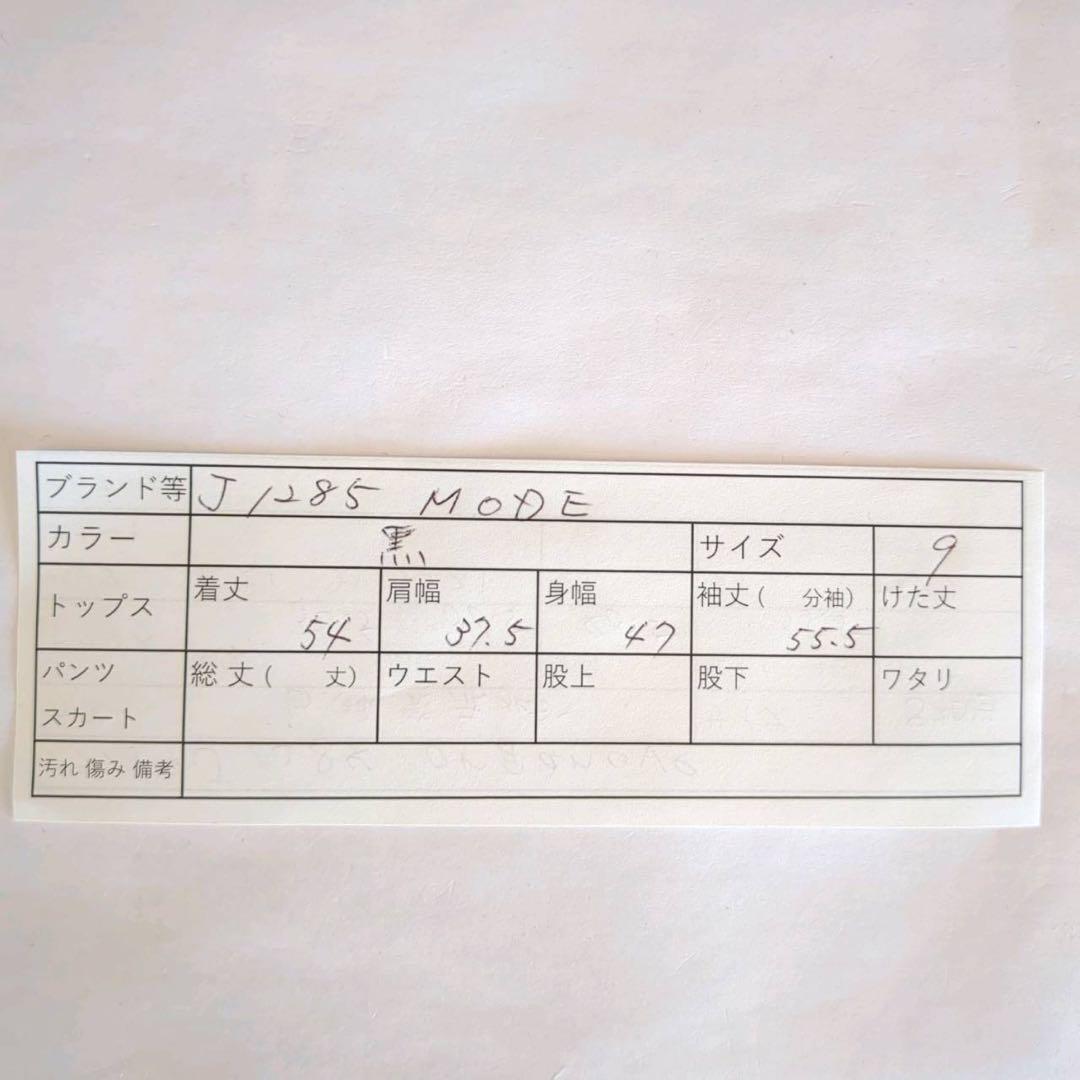 ブランド等 J1285 MODE
カラー 黒 サイズ 9
トップス 着丈 54 肩幅 37.5 身幅 47 袖丈( 分袖) 55.5 けた丈
パンツ スカート 総丈( 丈) ウエスト 股上 股下 ワタリ
汚れ 傷み 備考